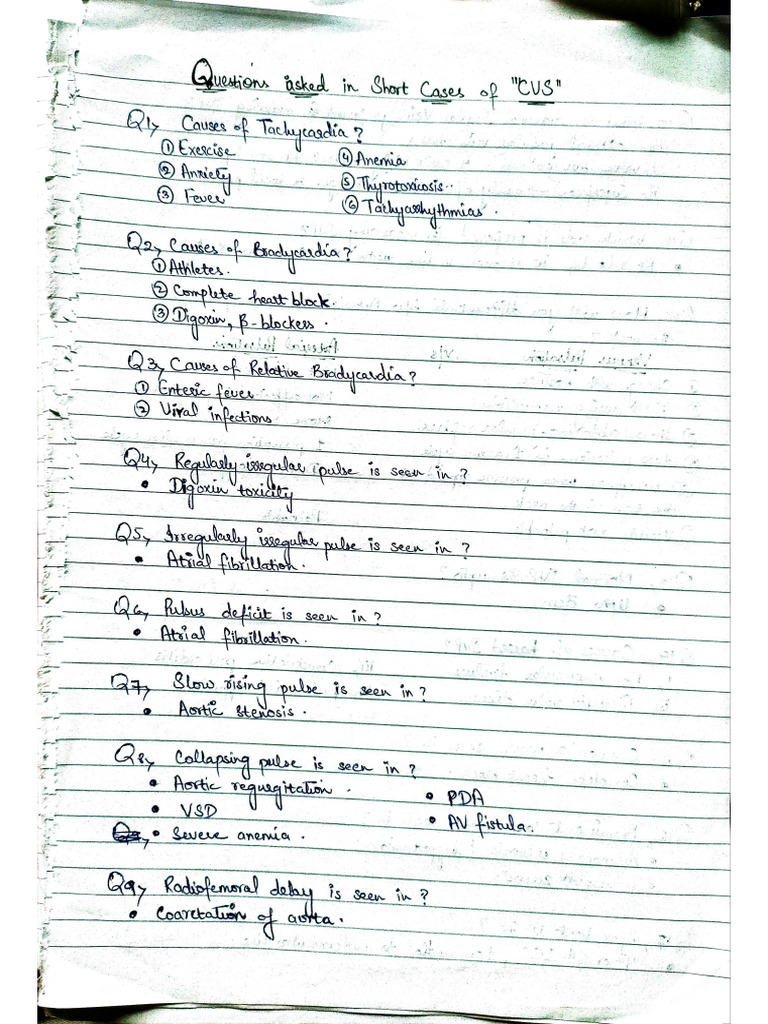 Questions asked in Short Cases of "CVS"
Q1, Causes of Tachycardia?
① Exercise ④ Anemia
② Anxiety ⑤ Thyrotoxicosis.
③ Fever ⑥ Tachyarrhythmias.
Q2, Causes of Bradycardia?
① Athletes.
② Complete heart block.
③ Digoxin, β-blockers.
Q3, Causes of Relative Bradycardia?
① Enteric fever
② Viral infections
Q4, Regularly-irregular pulse is seen in?
• Digoxin toxicity
Q5, Irregularly irregular pulse is seen in?
• Atrial fibrillation.
Q6, Pulsus deficit is seen in?
• Atrial fibrillation.
Q7, Slow rising pulse is seen in?
• Aortic stenosis.
Q8, Collapsing pulse is seen in?
• Aortic regurgitation. • PDA
• VSD • AV fistula.
• Severe anemia.
Q9, Radiofemoral delay is seen in?
• Coarctation of aorta.